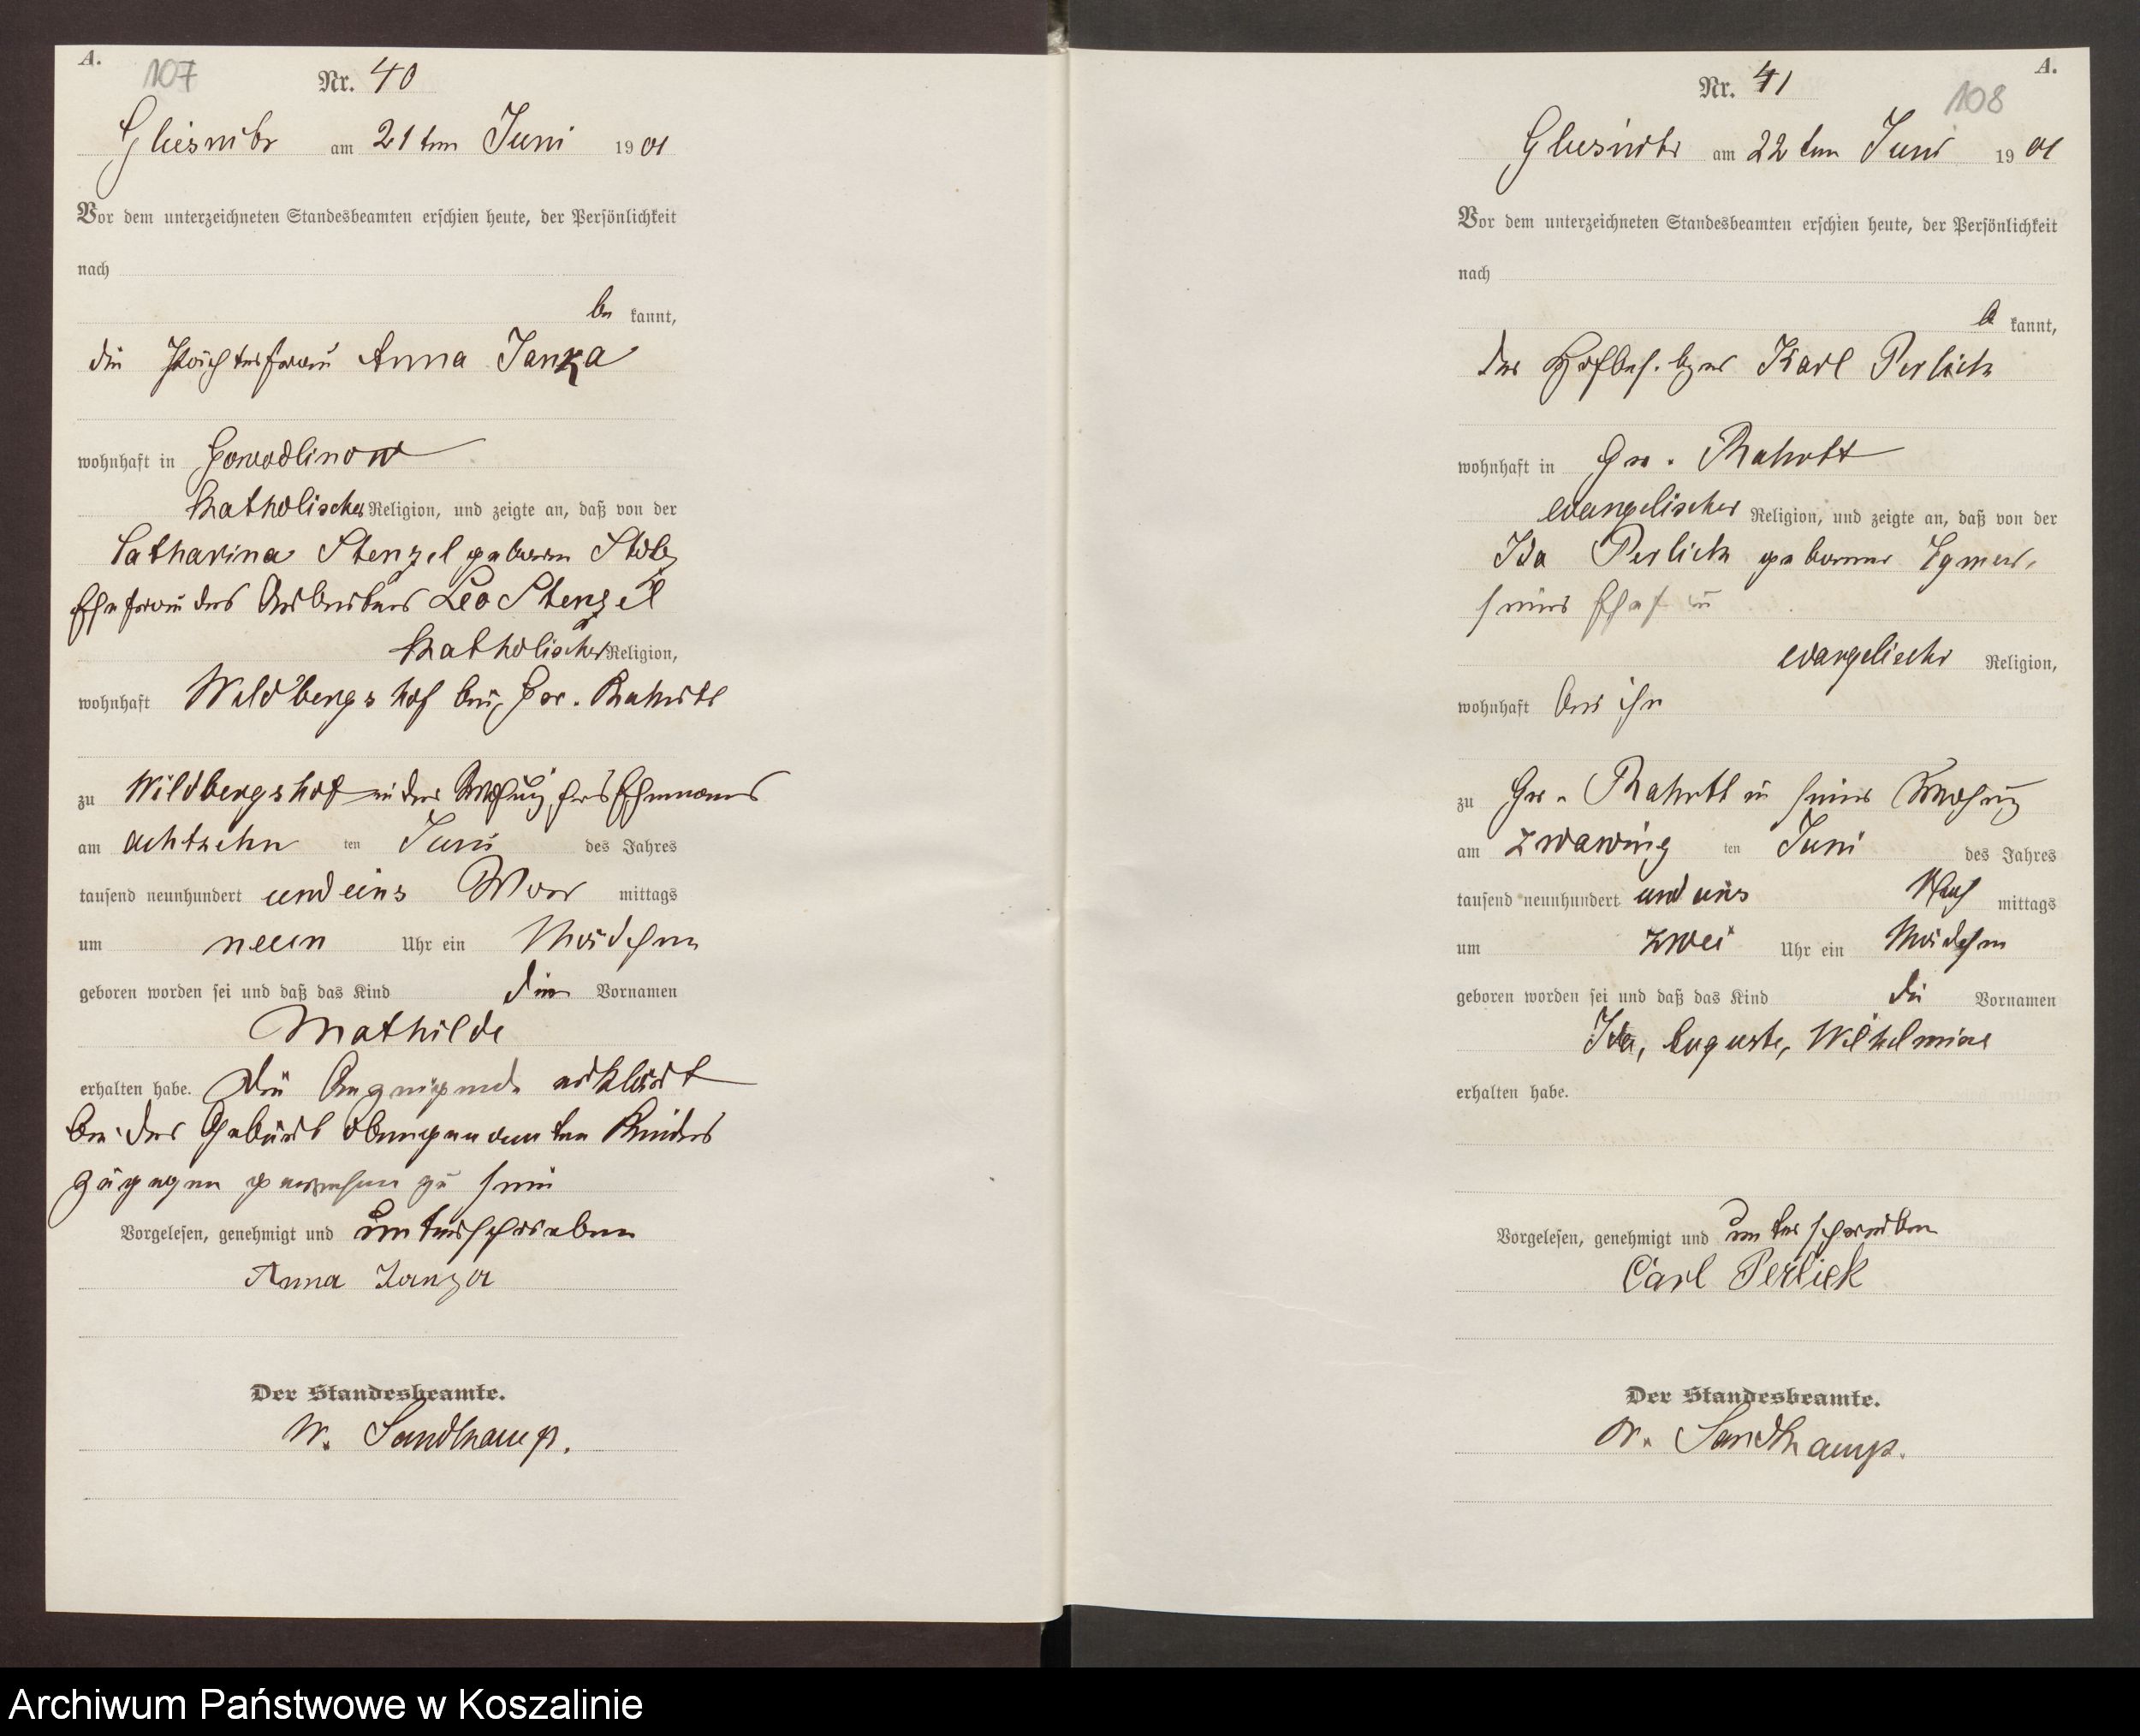 A.
107
Nr. 40
Gliesnitz am 21 ten Juni 1901
Vor dem unterzeichneten Standesbeamten erschien heute, der Persönlichkeit
nach
be kannt,
die Pächterfrau Anna Janza
wohnhaft in Gowodlinow
katholischer Religion, und zeigte an, daß von der
Catharina Stenzel geboren
Ehefrau des Arbeiters Leo Stenzel
katholischer Religion,
wohnhaft Wildbergshof bei Gr. Rakitt
zu Wildbergshof in der Wohnung ihres Ehemannes
am achtzehn ten Juni des Jahres
tausend neunhundert und eins Vor mittags
um neun Uhr ein Mädchen
geboren worden sei und daß das Kind den Vornamen
Mathilde
erhalten habe. Die Anzeigende erklärt
bei der Geburt obengenannten Kindes
zugegen gewesen zu sein
Vorgelesen, genehmigt und unterschrieben
Anna Janza
Der Standesbeamte.
W. Sandkamp.
A.
108
Nr. 41
Gliesnitz am 22 ten Juni 1901
Vor dem unterzeichneten Standesbeamten erschien heute, der Persönlichkeit
nach
be kannt,
der Hofbesitzer Karl Perlick
wohnhaft in Gr. Rakitt
evangelischer Religion, und zeigte an, daß von der
Ida Perlick geborene
seiner Ehefrau
evangelischer Religion,
wohnhaft bei ihm
zu Gr. Rakitt in seiner Wohnung
am zwanzig ten Juni des Jahres
tausend neunhundert und eins Nach mittags
um zwei Uhr ein Mädchen
geboren worden sei und daß das Kind die Vornamen
Ida, Auguste, Wilhelmine
erhalten habe.
Vorgelesen, genehmigt und unterschrieben
Carl Perlick
Der Standesbeamte.
W. Sandkamp.
Archiwum Państwowe w Koszalinie